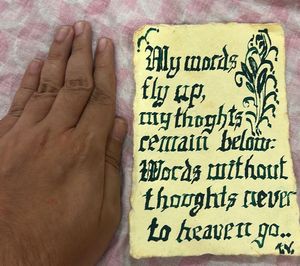 My words
fly up,
my thoghts
remain below:
Words without
thoughts never
to heaven go..